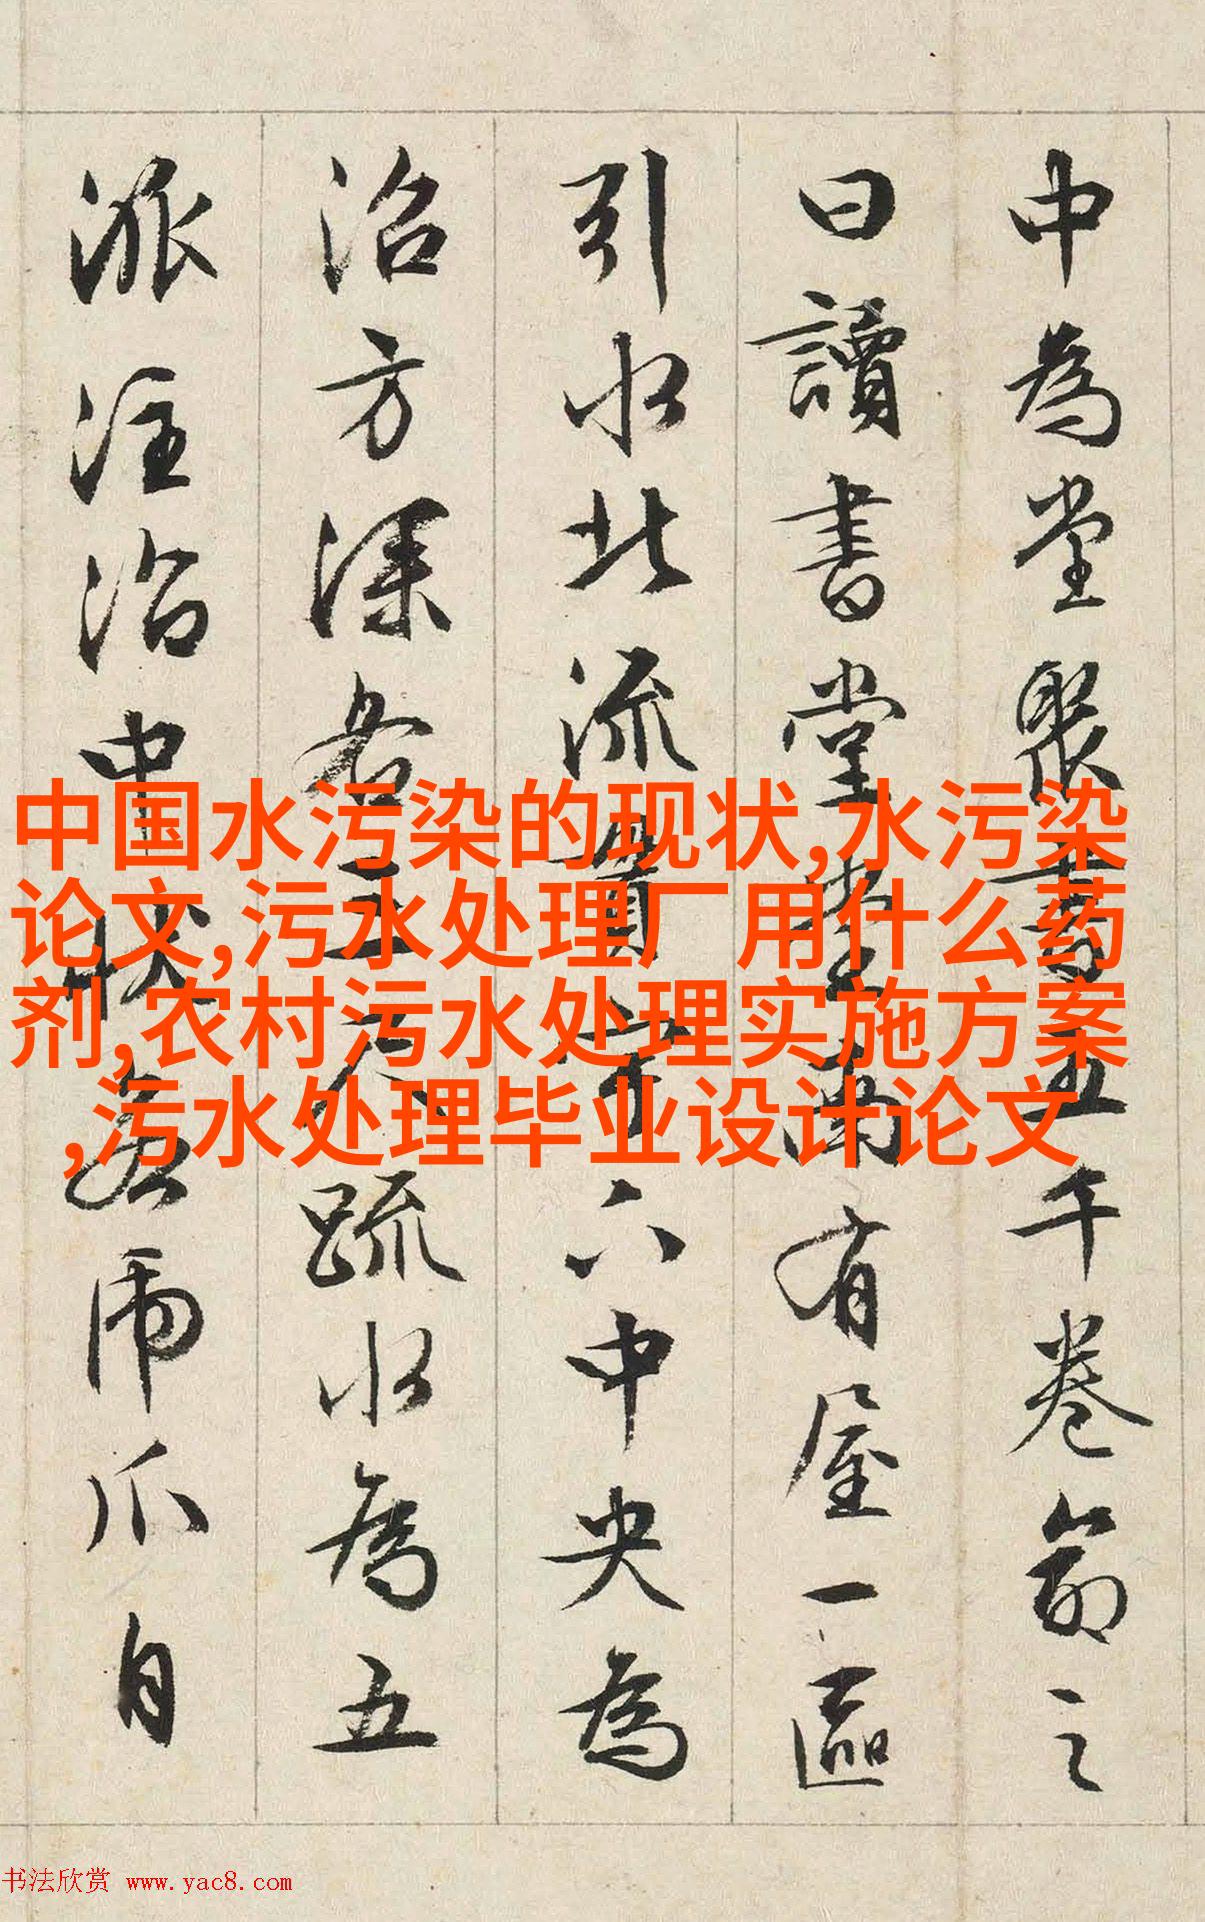 中為堂聚書五千卷命之
曰讀書堂堂南有屋一區
引水北流貫宇下中央為
沼方深各三尺疏水為五
派注沼中狀若虎爪自
中国水污染的现状,水污染
论文,污水处理厂用什么药
剂,农村污水处理实施方案
,污水处理毕业设计论文
书法欣赏 www.yac8.com